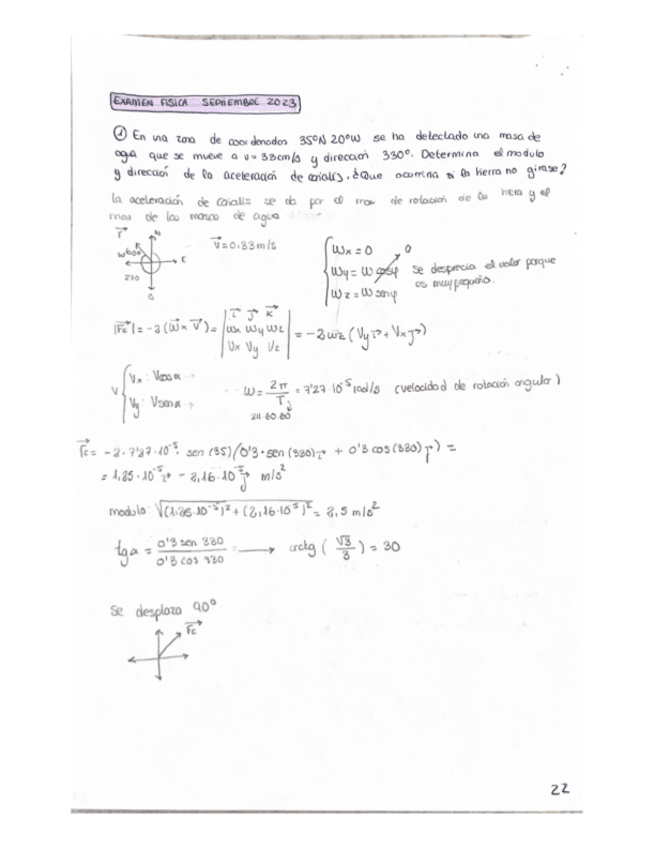 EXAMEN FISICA SEPTIEMBRE 2023
① En una zona de coordenadas 35ºN 20ºW se ha detectado una masa de
agua que se mueve a v = 33cm/s y dirección 330º. Determina el modulo
y dirección de la aceleración de coriolis. ¿Que ocurriria si la tierra no girase?
la aceleración de coriolis se da por el mov de rotacion de la tierra y el
mov de las masas de agua
N
W 60º E
270
V⃗ = 0,33 m/s
Wx = 0 0
Wy = W cosφ se desprecia el valor porque
Wz = W senφ es muy pequeño.
|Fc⃗| = -2 (W⃗ x V⃗) = | i⃗ j⃗ k⃗ | = -2wz (Vy i⃗ + Vx j⃗)
Wx Wy Wz
Vx Vy Vz
V Vx: Vcosα
Vy: Vsenα
W = 2π / T = 7'27·10⁻⁵ rad/s (velocidad de rotación angular)
24·60·60
Fc⃗ = -2·7'27·10⁻⁵· sen (35) (0'3·sen (330) i⃗ + 0'3 cos (330) j⃗) =
= 1,25·10⁻⁵ i⃗ - 2,16·10⁻⁵ j⃗ m/s²
modulo: √(1,25·10⁻⁵)² + (2,16·10⁻⁵)² = 2,5 m/s²
tga = 0'3 sen 330 / 0'3 cos 330 → arctg (√3/3) = 30
se desplaza 90º
Fc⃗
22